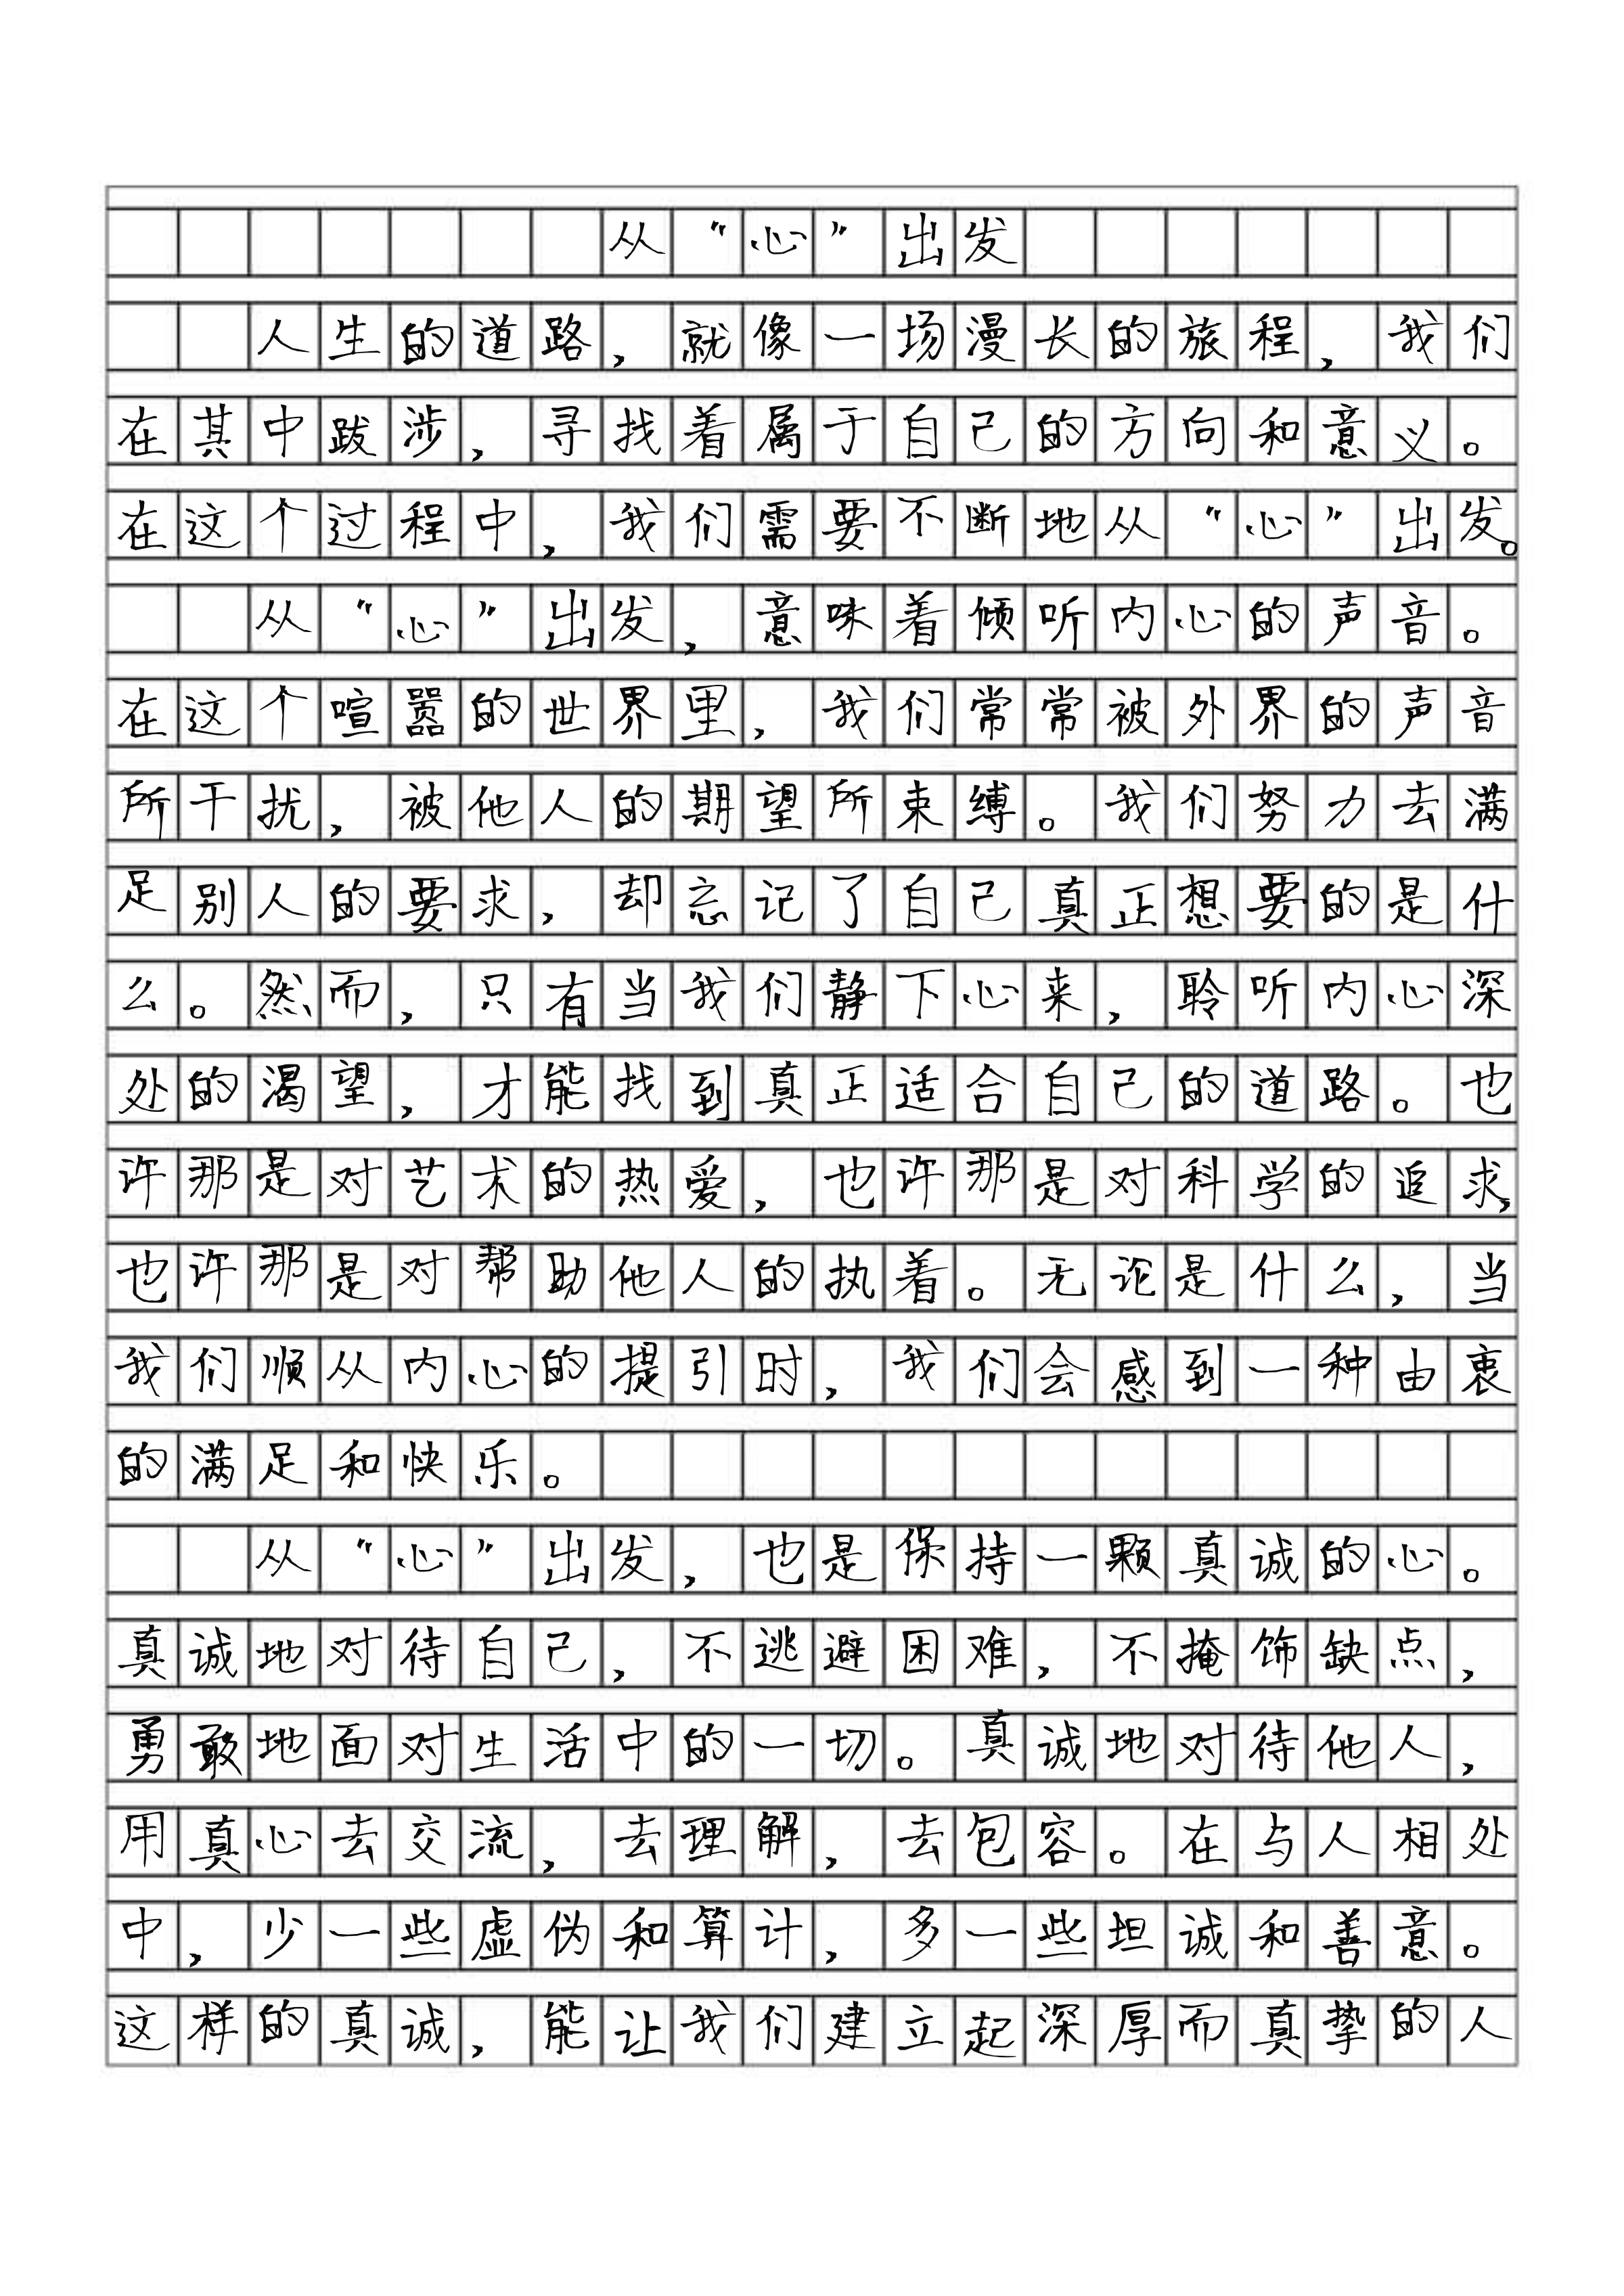 从“心”出发
人生的道路，就像一场漫长的旅程，我们
在其中跋涉，寻找着属于自己的方向和意义。
在这个过程中，我们需要不断地从“心”出发。
从“心”出发，意味着倾听内心的声音。
在这个喧嚣的世界里，我们常常被外界的声音
所干扰，被他人的期望所束缚。我们努力去满
足别人的要求，却忘记了自己真正想要的是什
么。然而，只有当我们静下心来，聆听内心深
处的渴望，才能找到真正适合自己的道路。也
许那是对艺术的热爱，也许那是对科学的追求，
也许那是对帮助他人的执着。无论是什么，当
我们顺从内心的提引时，我们会感到一种由衷
的满足和快乐。
从“心”出发，也是保持一颗真诚的心。
真诚地对待自己，不逃避困难，不掩饰缺点，
勇敢地面对生活中的一切。真诚地对待他人，
用真心去交流，去理解，去包容。在与人相处
中，少一些虚伪和算计，多一些坦诚和善意。
这样的真诚，能让我们建立起深厚而真挚的人